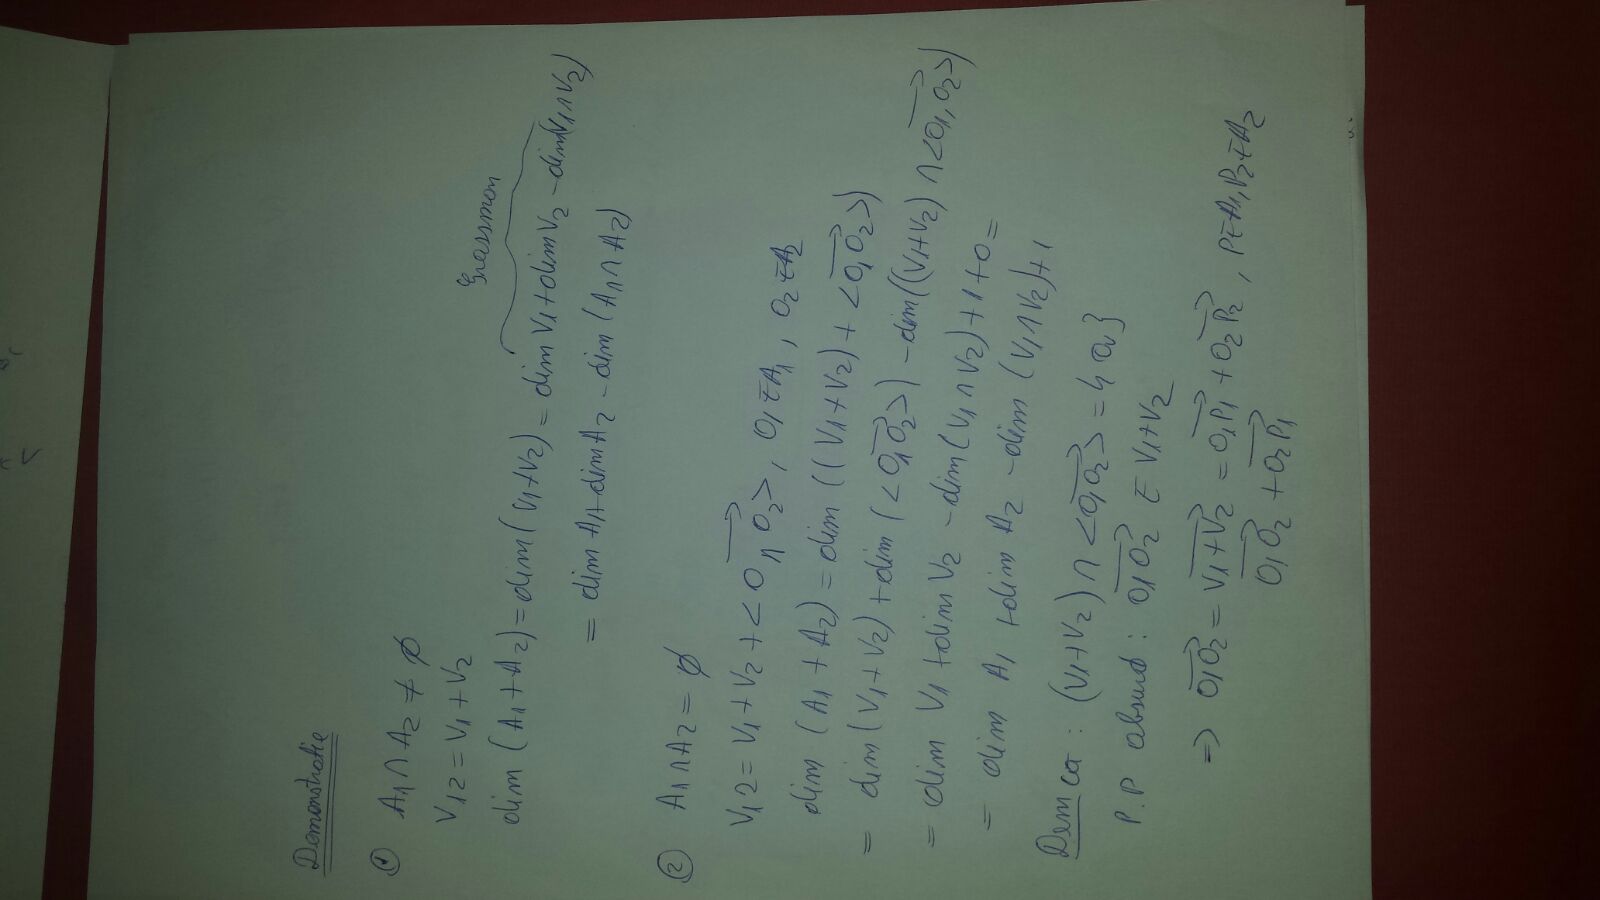 Demonstratie
① A1 ∩ A2 ≠ ∅
V12 = V1 + V2
Grassman
dim (A1 + A2) = dim (V1+V2) = dim V1 + dim V2 - dim(V1 ∩ V2)
= dim A1 + dim A2 - dim (A1 ∩ A2)
② A1 ∩ A2 = ∅
V12 = V1 + V2 + <O1O2>, O1 ∈ A1, O2 ∈ A2
dim (A1 + A2) = dim ((V1+V2) + <O1O2>)
= dim (V1+V2) + dim (<O1O2>) - dim((V1+V2) ∩ <O1,O2>)
= dim V1 + dim V2 - dim (V1 ∩ V2) + 1 + 0 =
= dim A1 + dim A2 - dim (V1 ∩ V2) + 1
Dem ca : (V1+V2) ∩ <O1O2> = {0}
P.P absurd : O1O2 ∈ V1+V2
⇒ O1O2 = V1+V2 = O1P1 + O2P2, P∈A1, P2∈A2
O1O2 + O2P1